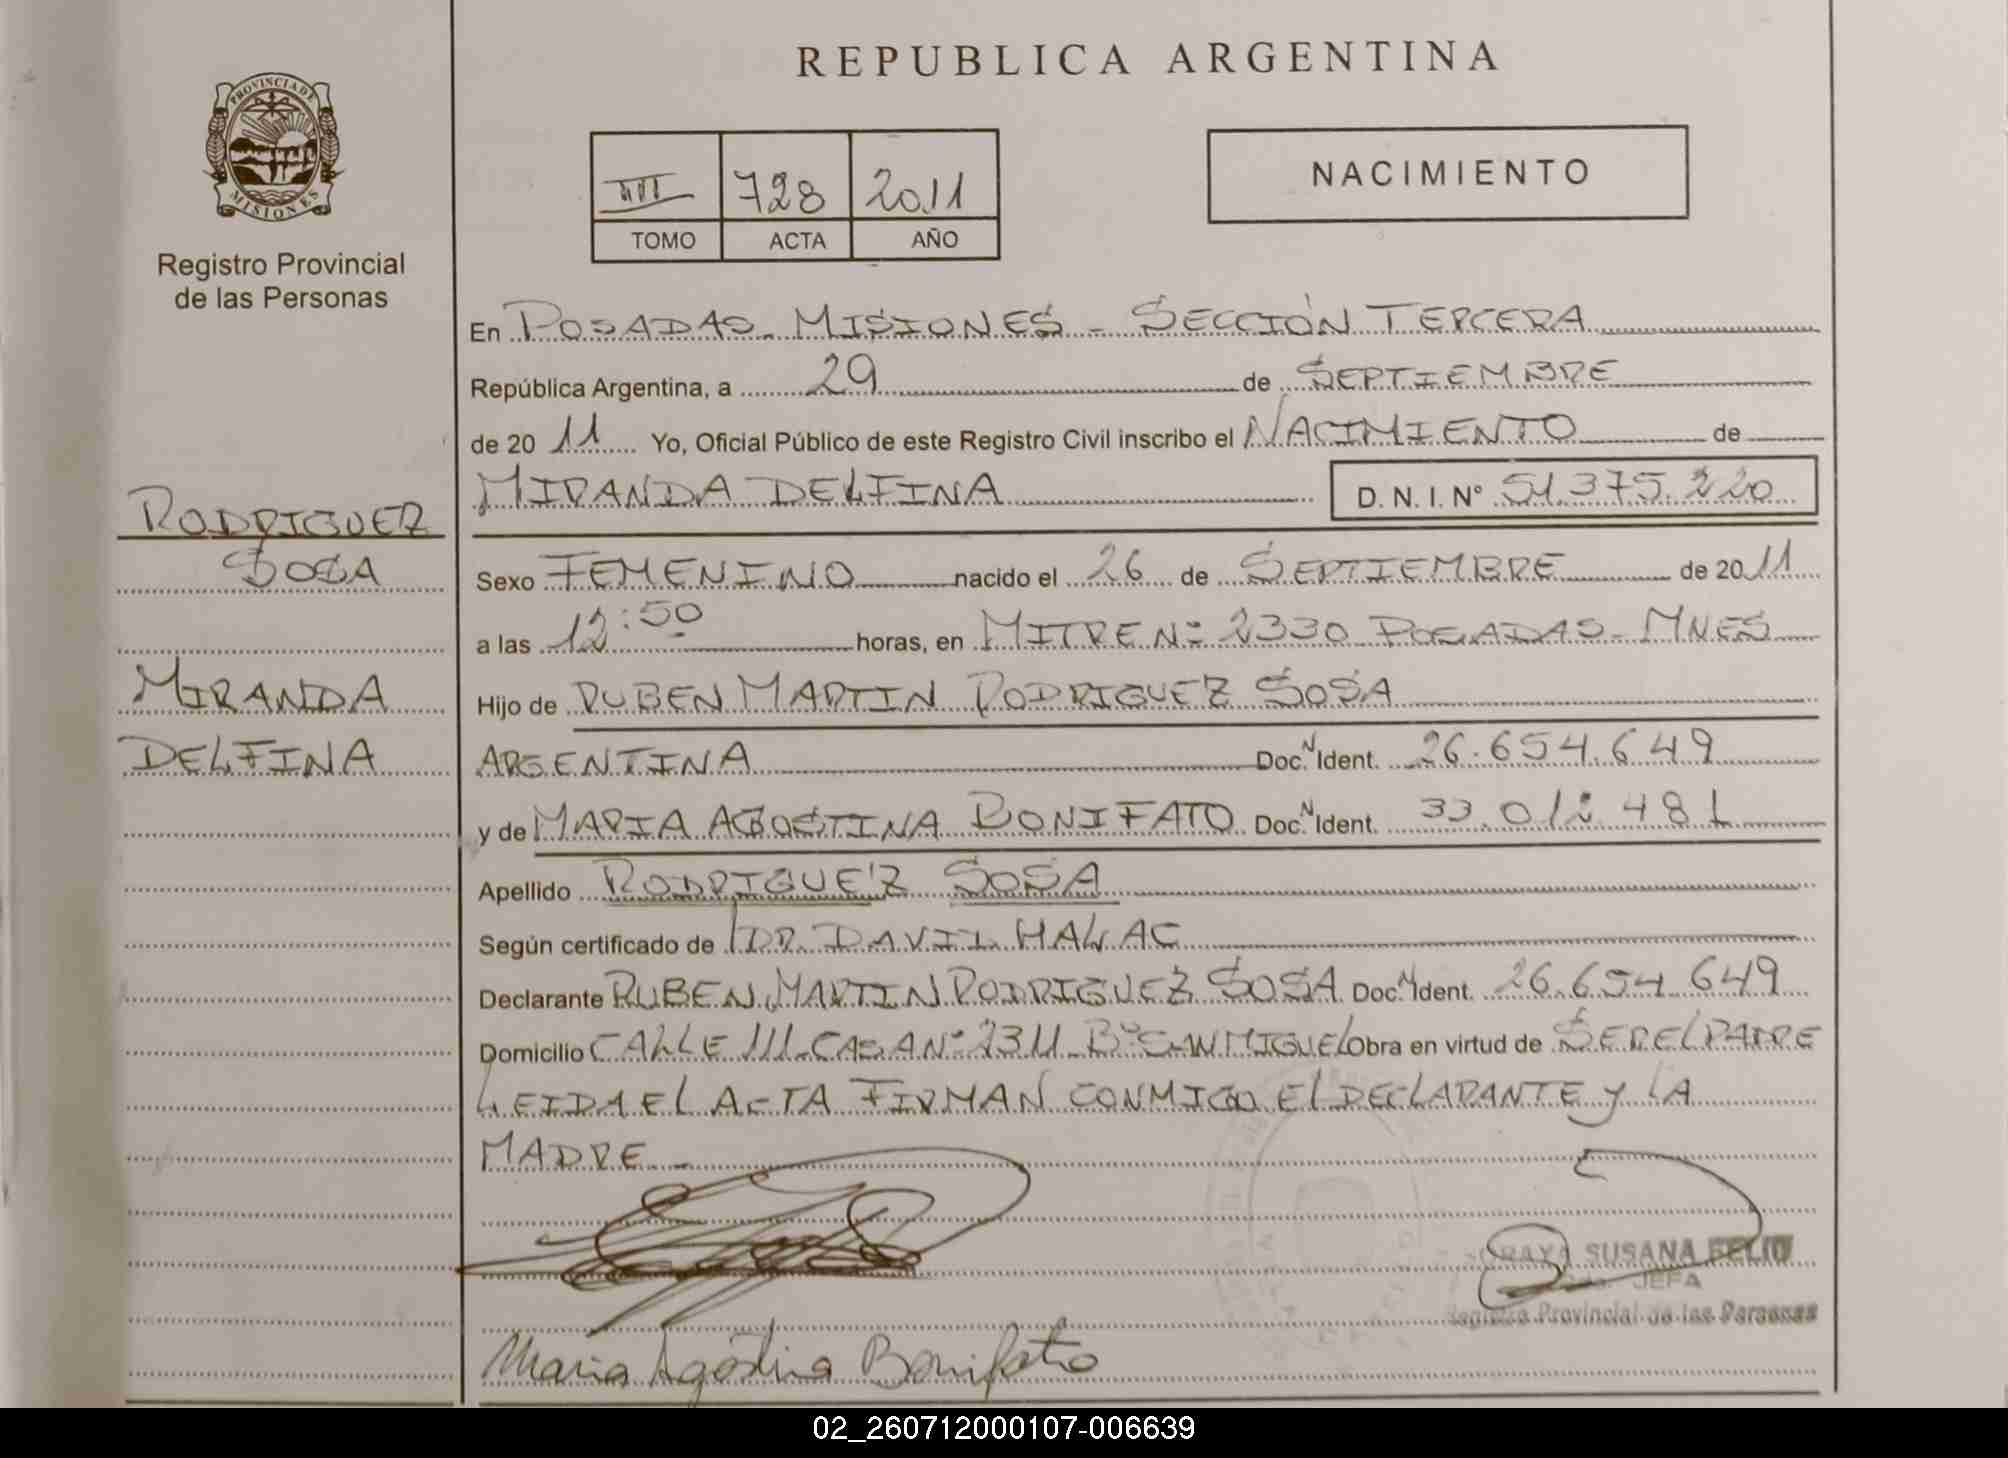 REPUBLICA ARGENTINA
PROVINCIA DE
MISIONES
Registro Provincial
de las Personas
III 728 2011
TOMO ACTA AÑO
NACIMIENTO
En POSADAS - MISIONES - SECCIÓN TERCERA
República Argentina, a 29 de SEPTIEMBRE
de 20 11 Yo, Oficial Público de este Registro Civil inscribo el NACIMIENTO de
MIRANDA DELFINA D. N. I. N° 51.375.220
RODRIGUEZ
SOSA
MIRANDA
DELFINA
Sexo FEMENINO nacido el 26 de SEPTIEMBRE de 20 11
a las 12:50 horas, en MITRE N° 2330 POSADAS - MNES
Hijo de RUBEN MARTIN RODRIGUEZ SOSA
ARGENTINA Doc. N Ident. 26.654.649
y de MARIA AGOSTINA BONIFATO Doc. N Ident. 33.012.481
Apellido RODRIGUEZ SOSA
Según certificado de DR. DAVID
Declarante RUBEN MARTIN RODRIGUEZ SOSA Doc. N Ident. 26.654.649
Domicilio CALLE 111 CASA N° 2311 B° SAN MIGUEL Obra en virtud de SER EL PADRE
LEIDA EL ACTA FIRMAN CONMIGO EL DECLARANTE Y LA
MADRE -
SUSANA FELIU
JEFA
Registro Provincial de las Personas
Maria Agostina Bonifato
02_260712000107-006639